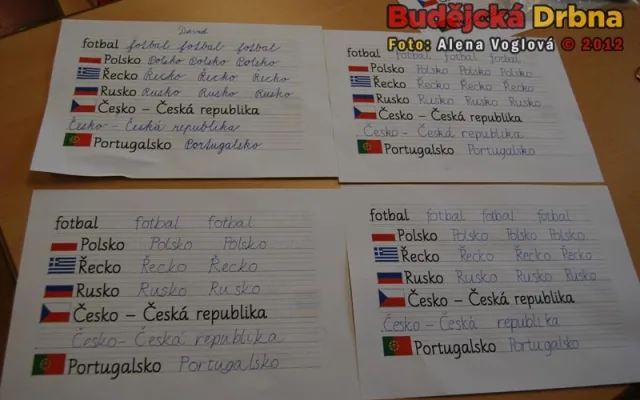 Budějcká Drbna
Foto: Alena Voglová © 2012
David
fotbal fotbal fotbal fotbal
Polsko Polsko Polsko Polsko
Řecko Řecko Řecko Řecko
Rusko Rusko Rusko Rusko
Česko – Česká republika
Česko - Česká republika
Portugalsko Portugalsko
fotbal fotbal fotbal fotbal
Polsko Polsko Polsko Polsko
Řecko Řecko Řecko Řecko
Rusko Rusko Rusko Rusko
Česko – Česká republika
Česko - Česká republika
Portugalsko Portugalsko
fotbal fotbal fotbal
Polsko Polsko Polsko
Řecko Řecko Řecko
Rusko Rusko Rusko
Česko – Česká republika
Česko - Česká republika
Portugalsko Portugalsko
fotbal fotbal fotbal fotbal
Polsko Polsko Polsko Polsko
Řecko Řecko Řecko Řecko
Rusko Rusko Rusko Rusko
Česko – Česká republika
Česko - Česká republika
Portugalsko Portugalsko